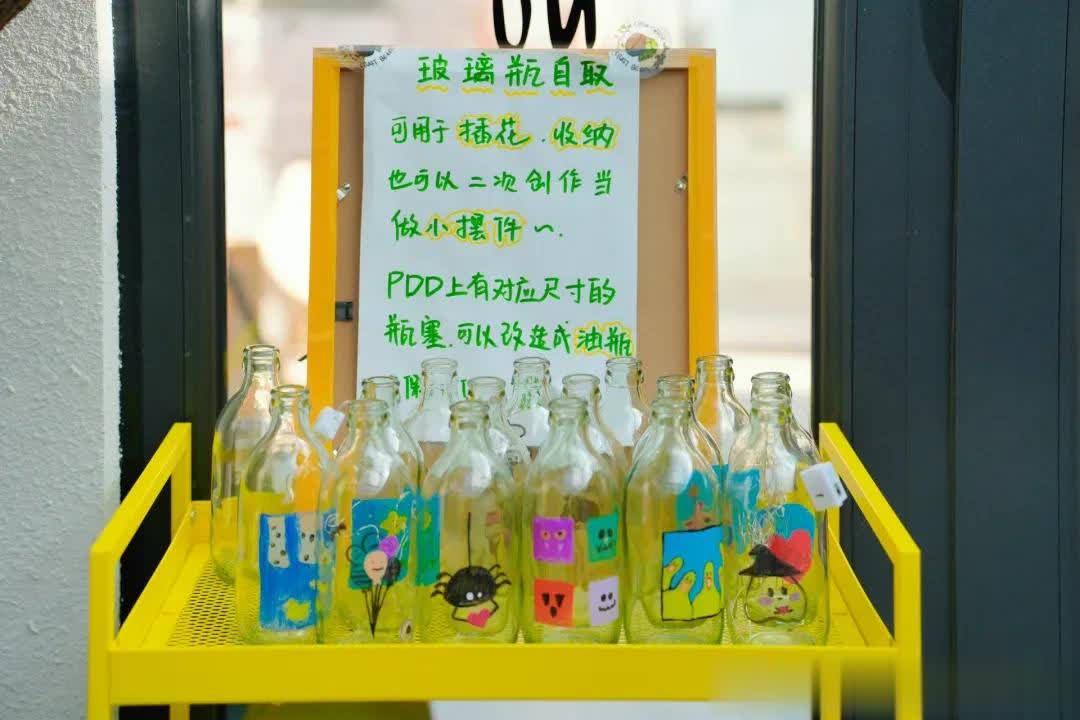 ou
玻璃瓶自取
可用于插花.收纳
也可以二次创作当
做小摆件~.
PDD上有对应尺寸的
瓶塞.可以改造成油瓶